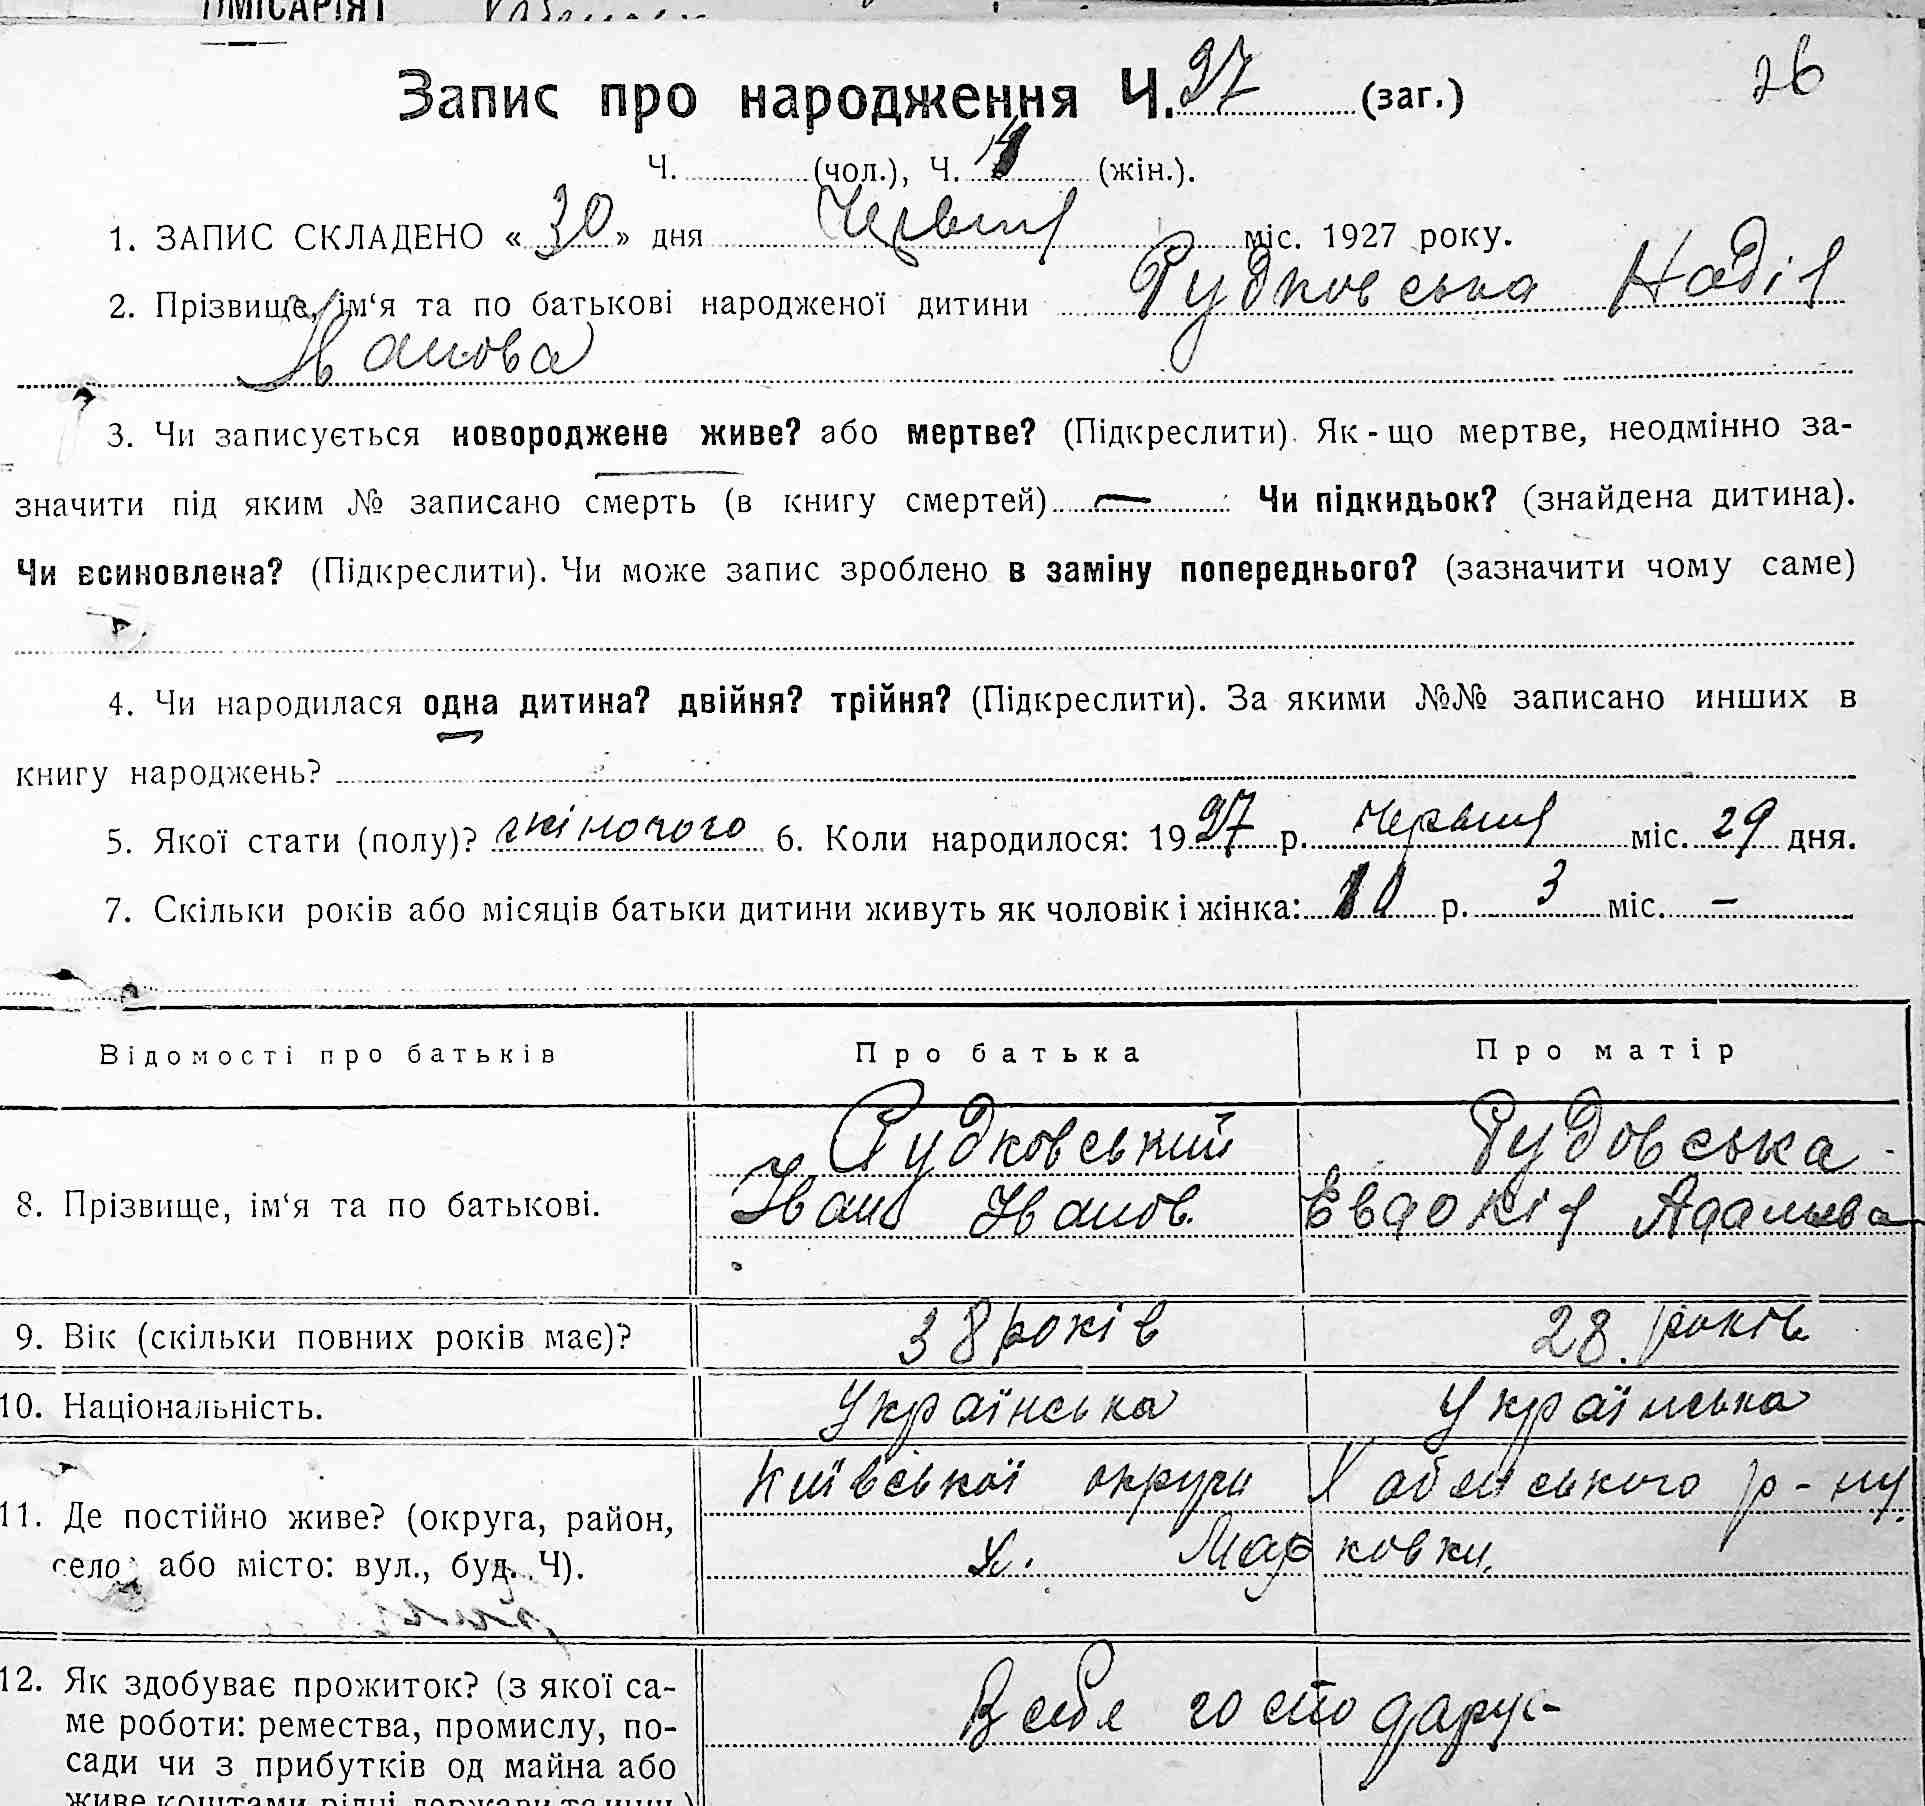 ОМІСАРІЯТ
26
Запис про народження Ч. 27 (заг.)
Ч. (чол.), Ч. 14 (жін.).
1. ЗАПИС СКЛАДЕНО « 30 » дня Червня міс. 1927 року.
2. Прізвище, ім‘я та по батькові народженої дитини Рудковська Надія
Іванова
3. Чи записується новороджене живе? або мертве? (Підкреслити). Як-що мертве, неодмінно за-
значити під яким № записано смерть (в книгу смертей) — Чи підкидьок? (знайдена дитина).
Чи всиновлена? (Підкреслити). Чи може запис зроблено в заміну попереднього? (зазначити чому саме)
4. Чи народилася одна дитина? двійня? трійня? (Підкреслити). За якими №№ записано инших в
книгу народжень?
5. Якої стати (полу)? жіночого 6. Коли народилося: 1927 р. Червня міс. 29 дня.
7. Скільки років або місяців батьки дитини живуть як чоловік і жінка: 10 р. 3 міс. —
Відомості про батьків Про батька Про матір
8. Прізвище, ім‘я та по батькові. Рудковський Рудовська
Іван Іванов. Евдокія Адамова
9. Вік (скільки повних років має)? 38 років 28. років
10. Національність. Українська Українська
11. Де постійно живе? (округа, район, Київської округи Хабенського р-ну,
село або місто: вул., буд. Ч). х. Марковки.
12. Як здобуває прожиток? (з якої са-
ме роботи: ремества, промислу, по- В себе господарує
сади чи з прибутків од майна або
живе коштами рідні, держави та инш.)